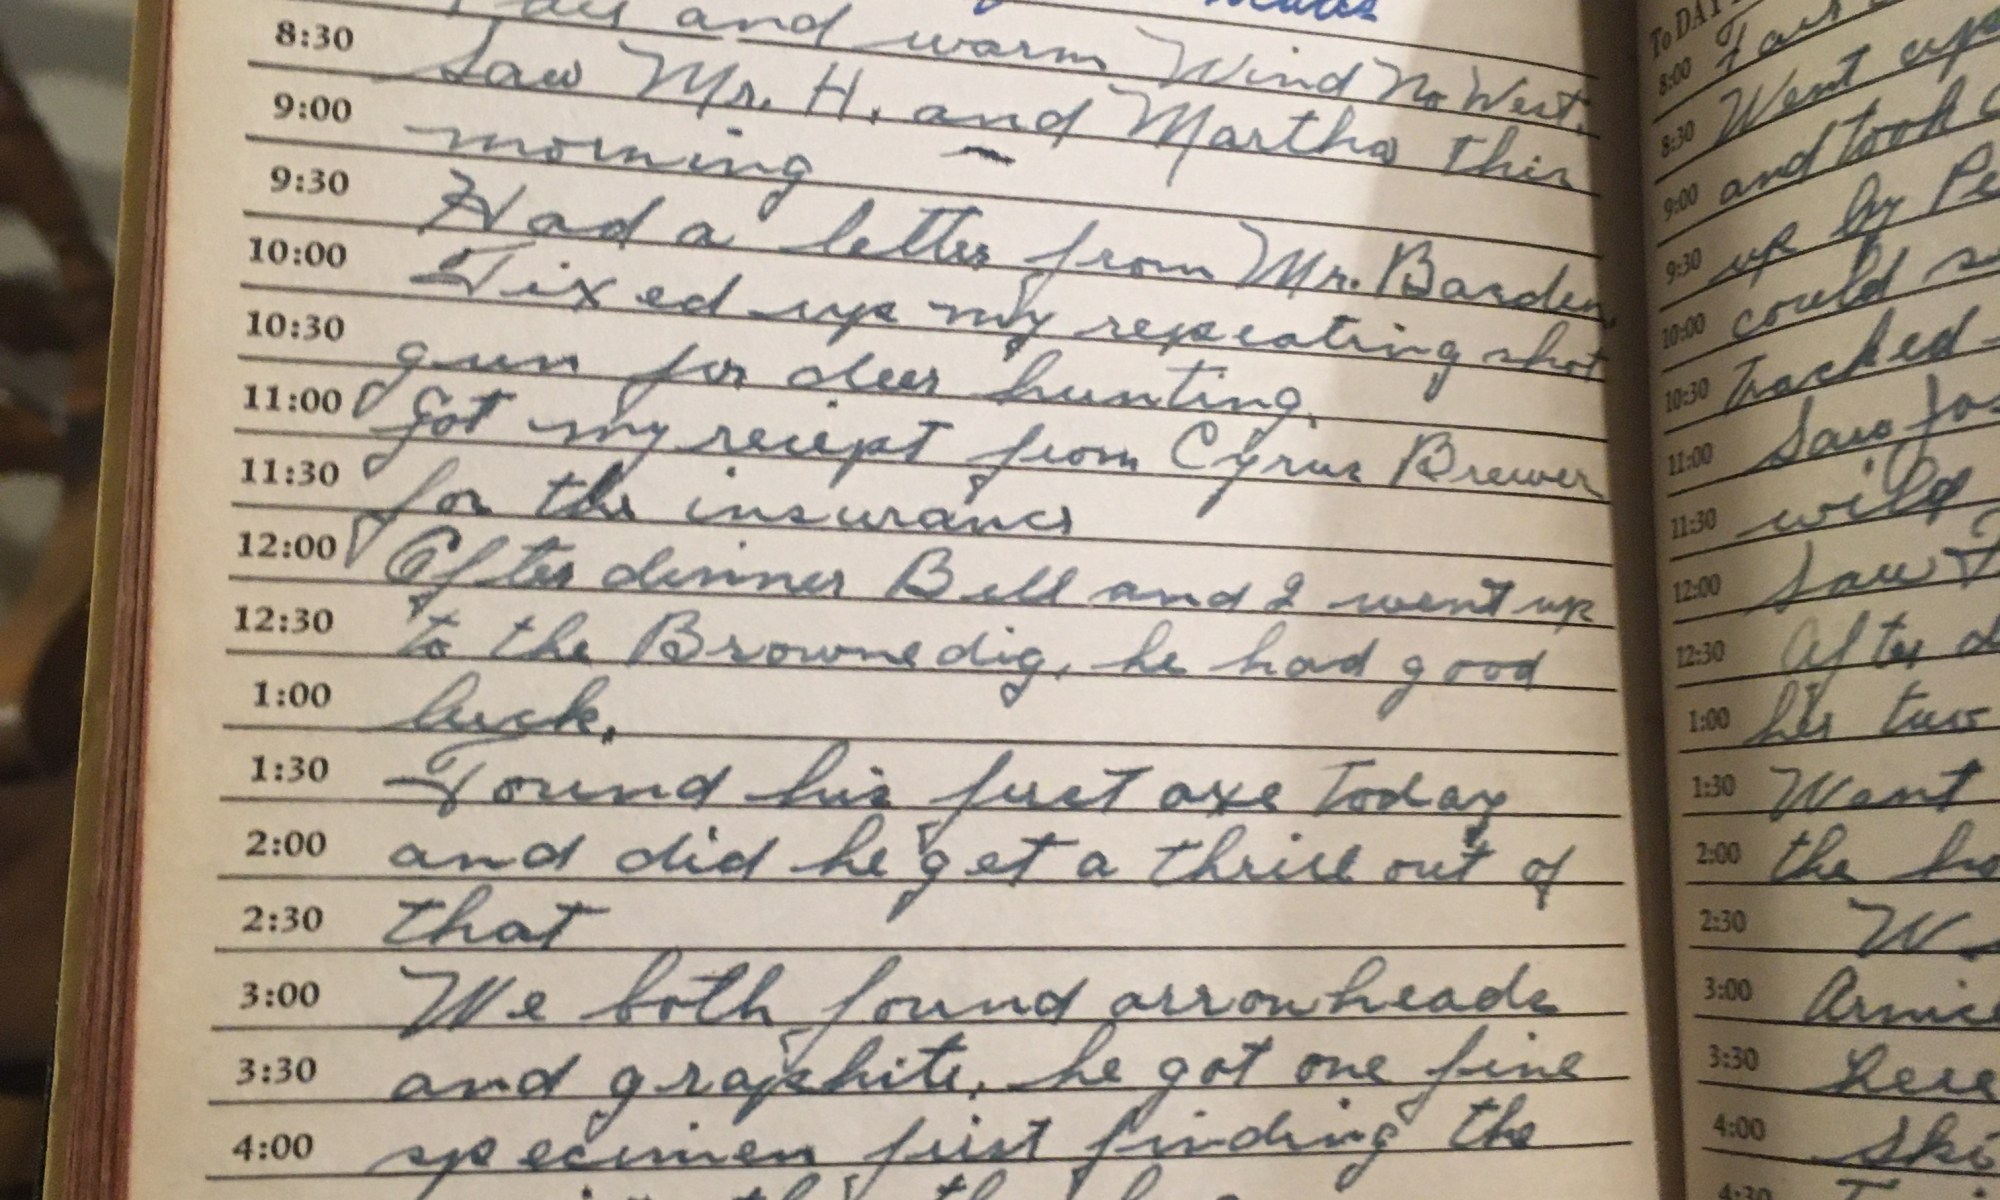 and warm Wind No West.
8:30 Saw Mr. H. and Martha this
9:00 morning
9:30 Had a letter from Mr. Barden.
10:00 Fixed up my repeating shot
10:30 gun for deer hunting.
11:00 Got my reciept from Cyrus Brewer
11:30 for the insurance
12:00 After dinner Bill and I went up
12:30 to the Browne dig, he had good
1:00 luck.
1:30 Found his first axe today
2:00 and did he get a thrill out of
2:30 that
3:00 We both found arrowheads
3:30 and graphite, he got one fine
4:00 specimen just finding the
To DAY
8:00
8:30 Went up
9:00 and took
9:30 up by
10:00 could
10:30 tracked
11:00 Saw
11:30 wild
12:00 Saw
12:30 After
1:00 his two
1:30 Want
2:00 the
2:30
3:00
3:30 here
4:00
4:30